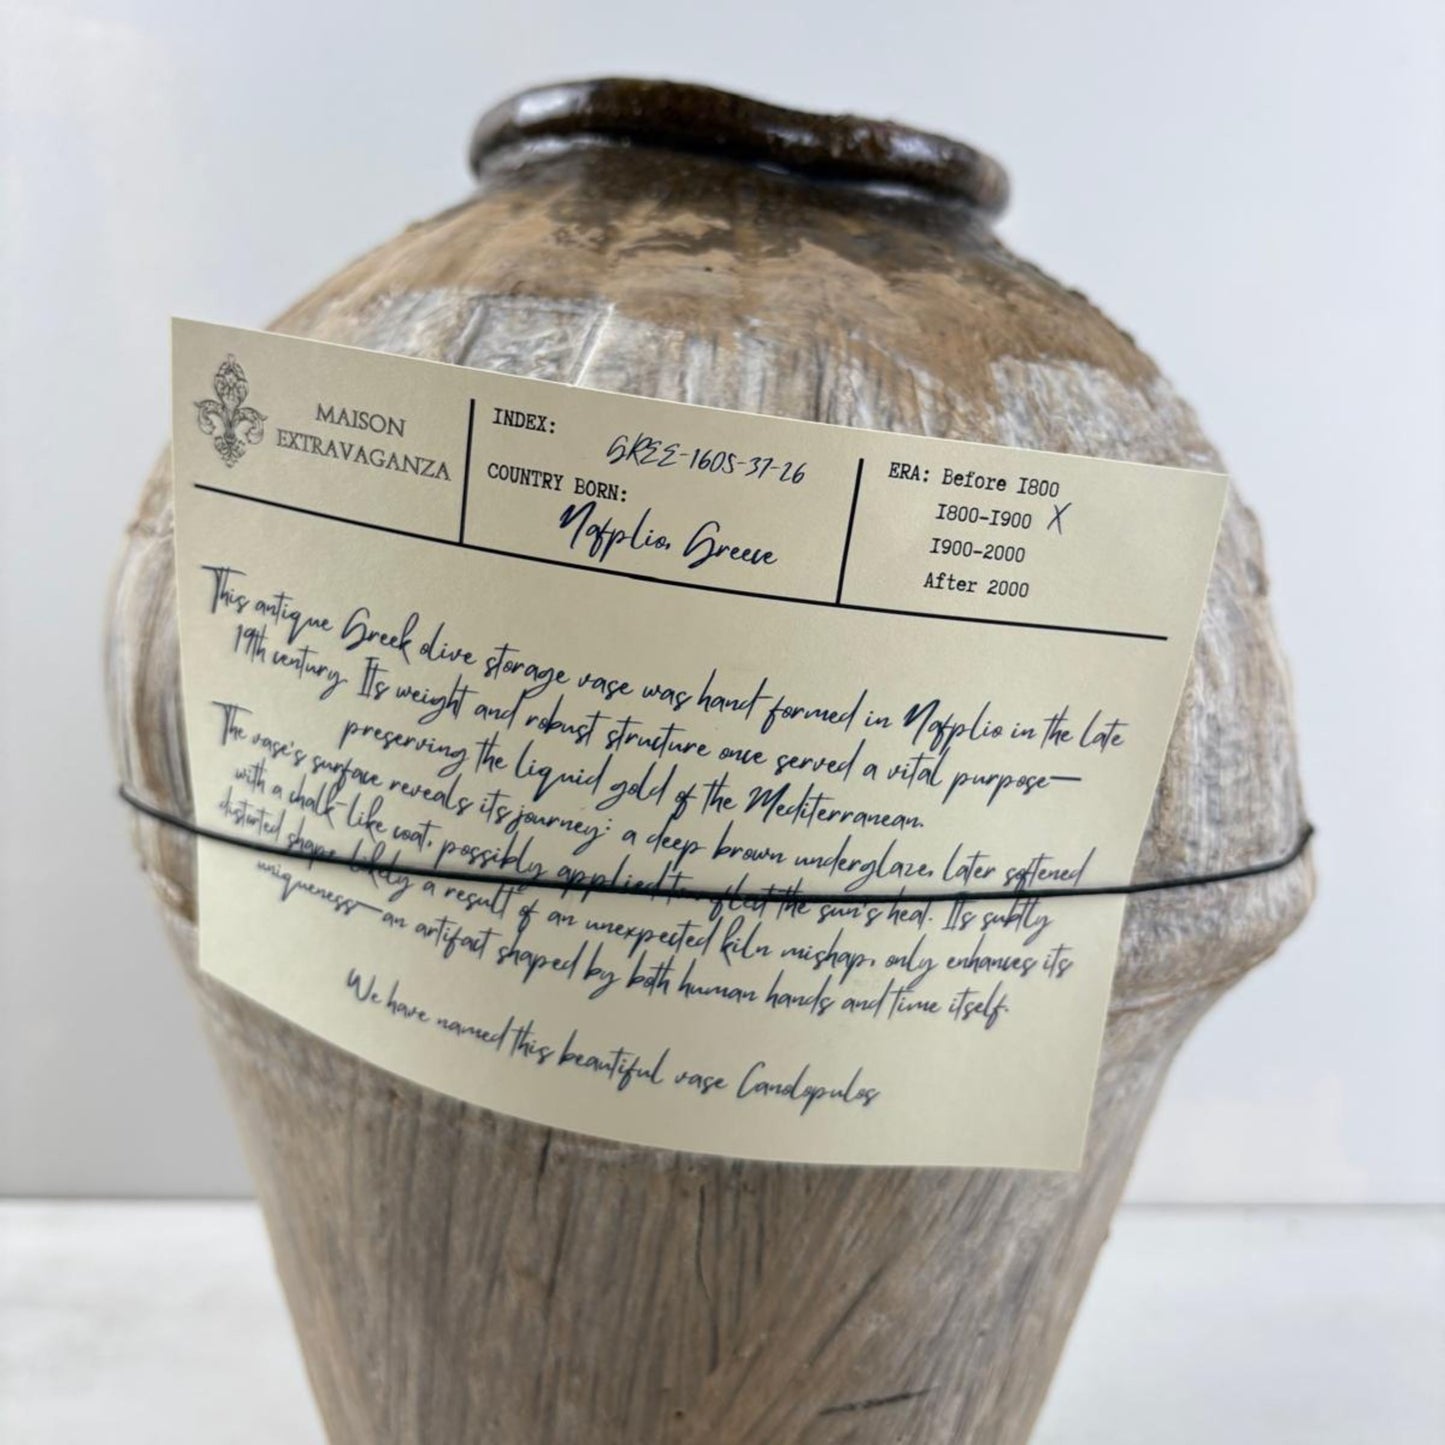 MAISON
EXTRAVAGANZA
INDEX:
GREE-1605-37-26
COUNTRY BORN:
Nafplio, Greece
ERA: Before 1800
1800-1900 X
1900-2000
After 2000
This antique Greek olive storage vase was hand formed in Nafplio in the late
19th century. Its weight and robust structure once served a vital purpose—
preserving the liquid gold of the Mediterranean.
The vase's surface reveals its journey: a deep brown underglaze, later softened
with a chalk-like coat, possibly applied to reflect the sun's heat. Its subtly
distorted shape, likely a result of an unexpected kiln mishap, only enhances its
uniqueness—an artifact shaped by both human hands and time itself.
We have named this beautiful vase Canolopulos